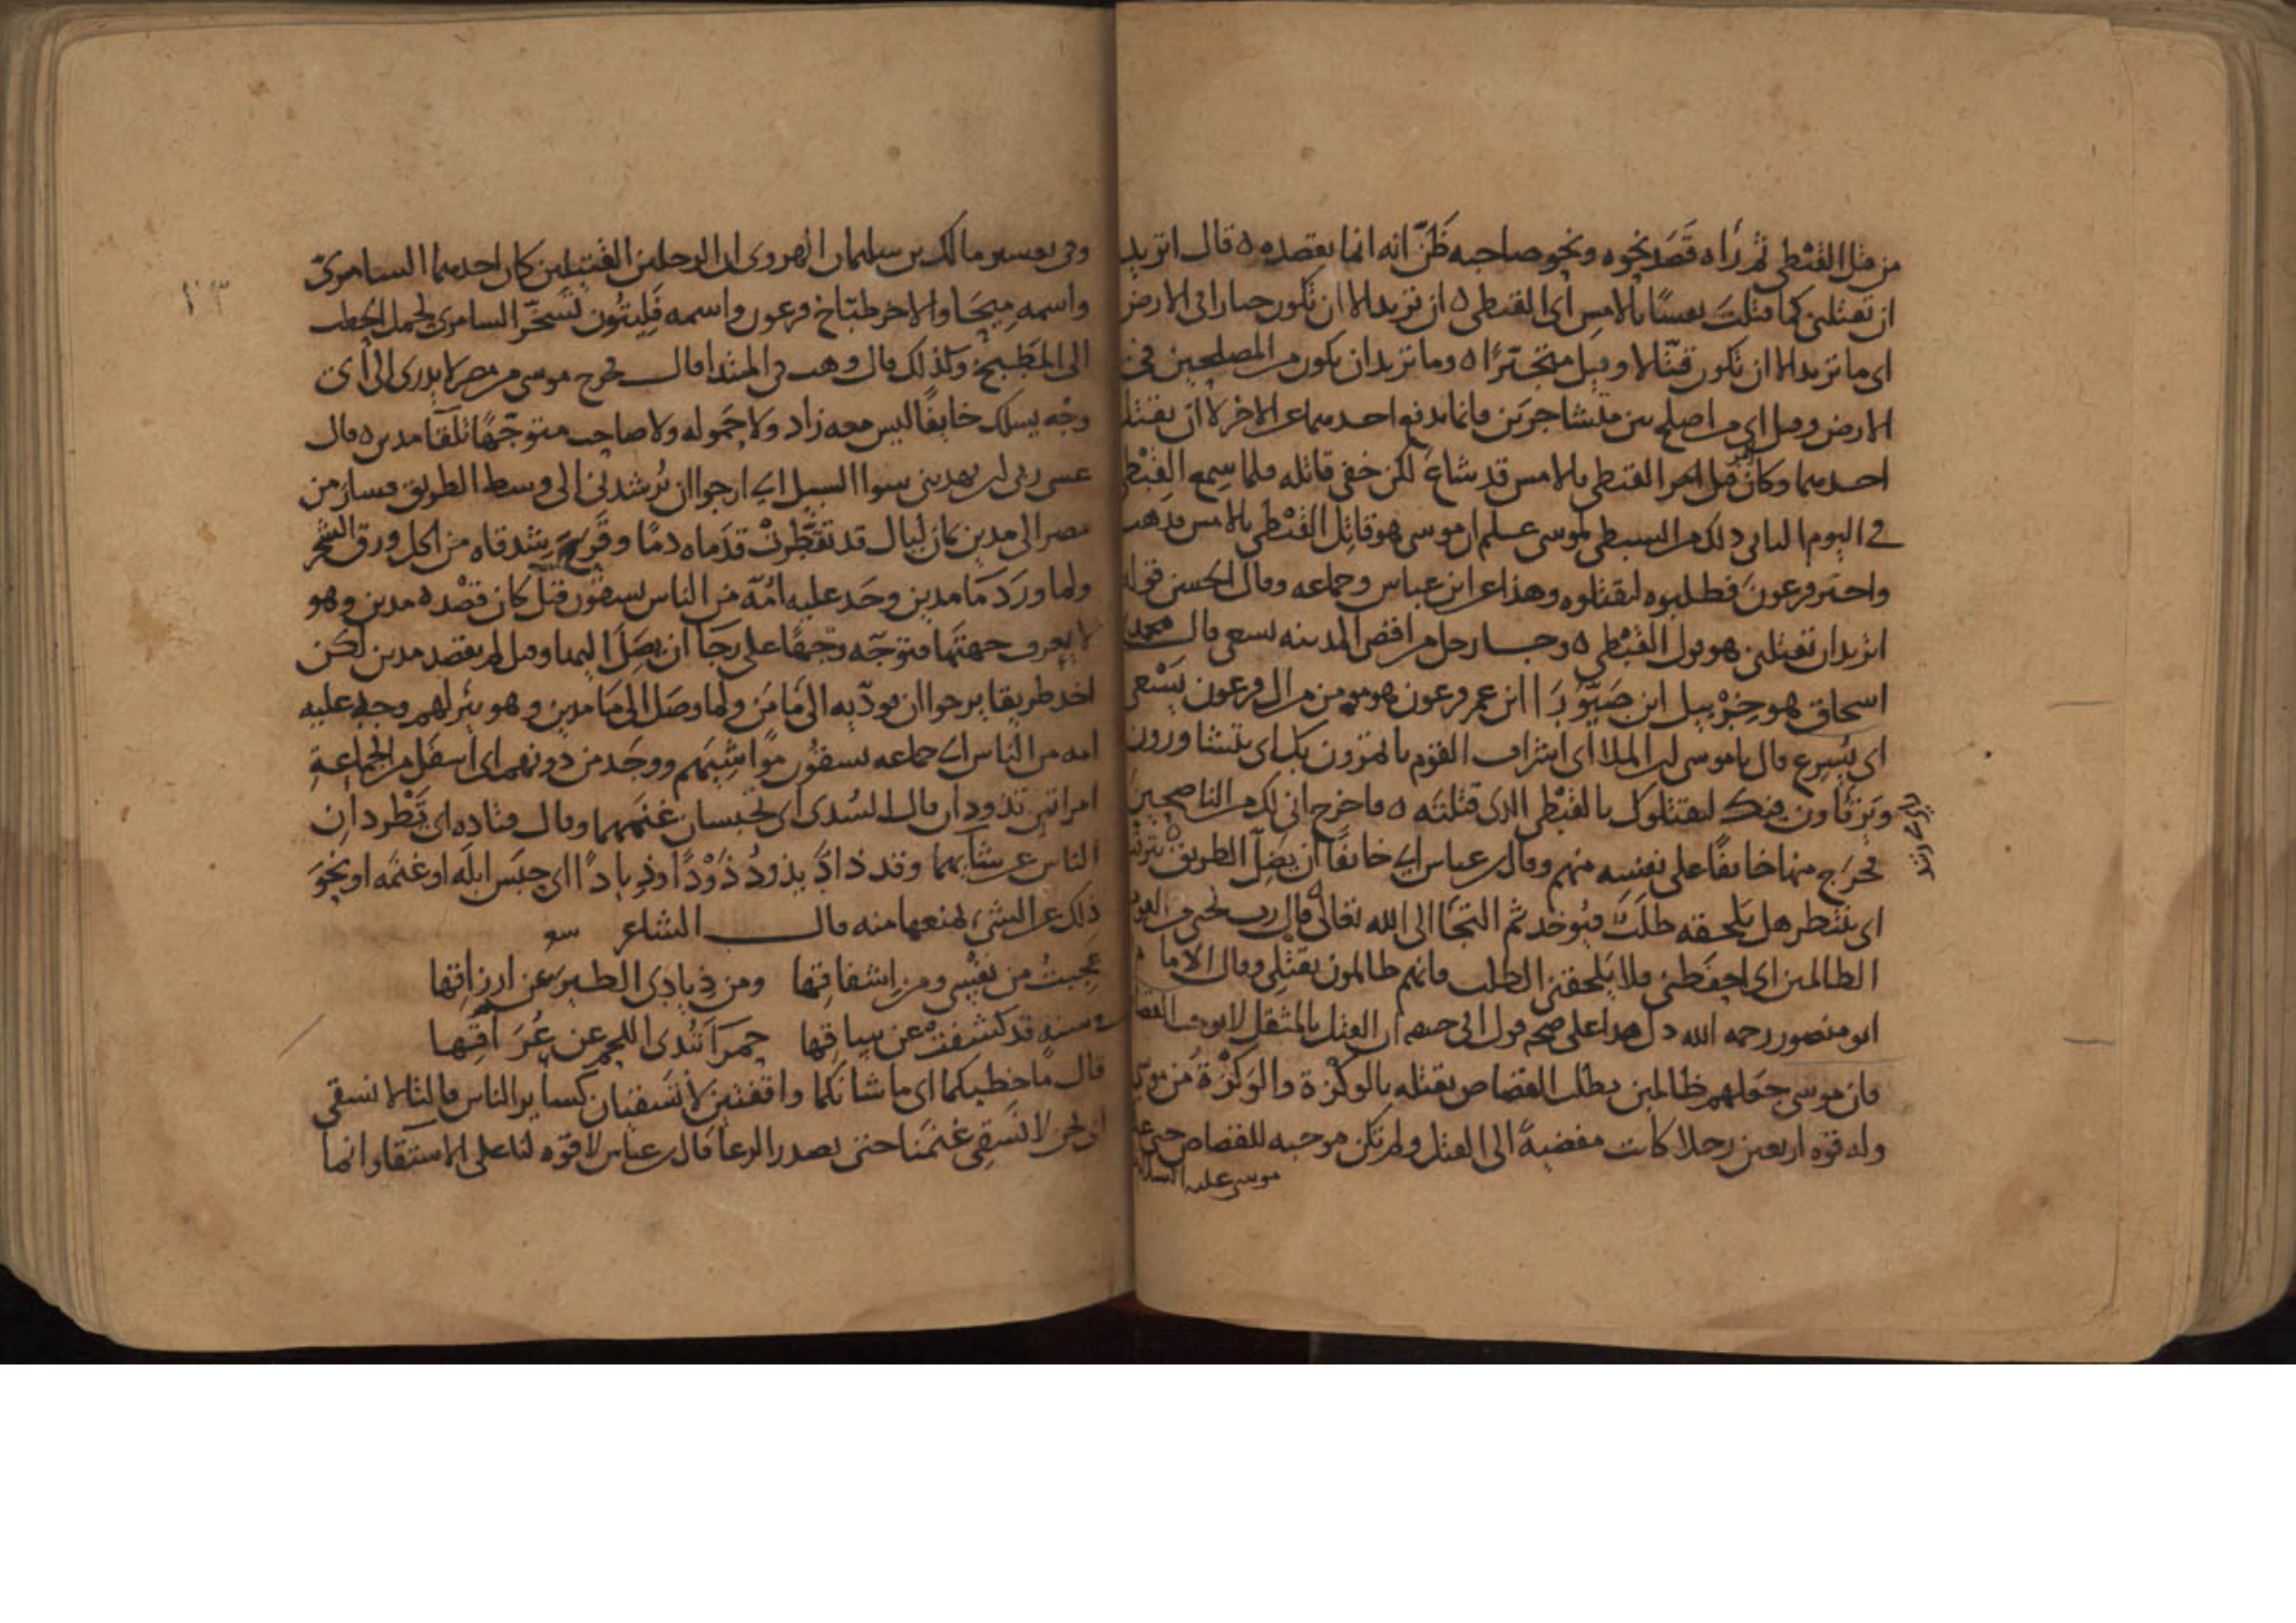 من قتل القبطي ثم رآه قصد نحوه ونحو صاحبه ظنّ انه انما يقصده ٥ قال اتريد
ان تقتلني كما قتلت نفسًا بالامس اى القبطي ٥ ان تريد الا ان تكون جبارا في الارض
اى ما تريد الا ان تكون قتّالا وقيل متجبّرًا ٥ وما تريد ان تكون من المصلحين في
الارض وقيل اى من اصلح بين متشاجرَين فانما يدفع احدهما عن الاخر لا ان يقتل
احدهما وكان قبل امر القبطي بالامس قد شاع لكن خفي قاتله فلما سمع القبطي
في اليوم الثاني ذلك من السبطي لموسى علم ان موسى هو قاتل القبطي بالامس فذهب
واخبر فرعون فطلبوه ليقتلوه وهذا عن ابن عباس وجماعه وقال الحسن قوله
اتريد ان تقتلني هو قول القبطي ٥ وجا رجل من اقصى المدينه يسعى قال محمد بن
اسحاق هو حزبيل ابن صبّورا ابن عم فرعون هو مومن من ال فرعون يسعى
اى يُسرع قال ياموسى ان الملا اى اشراف القوم ياتمرون بك اى يتشاورون
ويرتاون فيك ليقتلوك بالقبطي الذى قتلته ٥ فاخرج اني لك من الناصحين
فخرج منها خايفًا على نفسه منهم وقال ابن عباس اى خايفًا ان يضل الطريق ٥ يترقب
اى ينتظر هل يلحقه طلبٌ فيوخذ ثم التجا الى الله تعالى ٥ قال رب نجني من القوم
الظالمين اى احفظني فلا يلحقني الطلب فانهم ظالمون بقتلي وقال الامام
ابو منصور رحمه الله دل هذا على صحه قول ابي حنيفه ان القتل بالمثقل لا يوجب القصاص
فان موسى جعلهم ظالمين بطلب القصاص بقتله بالوكزة والوكزة من موسى
وله قوه اربعين رجلا كانت مفضيةً الى القتل ولم تكن موجبه للقصاص حتى
موسى عليه السلام
وفي تفسير مالك بن سليمان الهروى ان الرجلين القتيلين كان احدهما السامرىّ
واسمه مِيحَا والاخر طبّاخ فرعون واسمه فَلِيثُون تسخّر السامرى لحمل الحطب
الى المطبخ وكذلك قال وهب في المبتدا قال فخرج موسى من مصر لا يدرى الى اى
وجه يسلك خايفًا ليس معه زاد ولا حموله ولا صاحب متوجّهًا تلقا مدين ٥ قال
عسى ربي ان يهديني سوا السبيل اى ارجوا ان يُرشدني الى وسط الطريق فسار من
مصر الى مدين ثمان ليال قد تقطّرت قدَماه دمًا وقرح شدقاه من اكل ورق الشجر
ولما ورد ما مدين وجد عليه امّه من الناس يسقون قيل كان قصده مدين وهو
لا يعرف جهتها فتوجّه وجهها على رجا ان يصل اليها وقيل لم يقصد مدين لكن
اخذ طريقا يرجوا ان يودّيه الى مامن ولما وصل الى ما مدين وهو بئر لهم وجد عليه
امه من الناس اى جماعه يسقون مواشيهم ووجد من دونهم اى اسفل من الجماعة
امراتين تذودان قال السُدى اى تحبسان غنمهما وقال قتاده اى تطردان
الناس عن شآيهما وقد ذادَ يذودُ ذَوْدًا وذيادًا اى حبس ابله او غنمه او نحو
ذلك عن الشيء لمنعها منه قال الشاعر
عجبتُ من نفسي ومن إشفاقها ومن ذيادى الطير عن ارزاقها
في سنه قد كشفتْ عن ساقها حمرآ تُبدى اللحم عن عُرَاقها
قال ما خطبكما اى ما شانكما واقفتين لا تسقيان كساير الناس قالتا لا نسقي
اى نحن لا نسقي غنمنا حتى يصدر الرعا قال ابن عباس لا قوّه لنا على الاستقا وانما